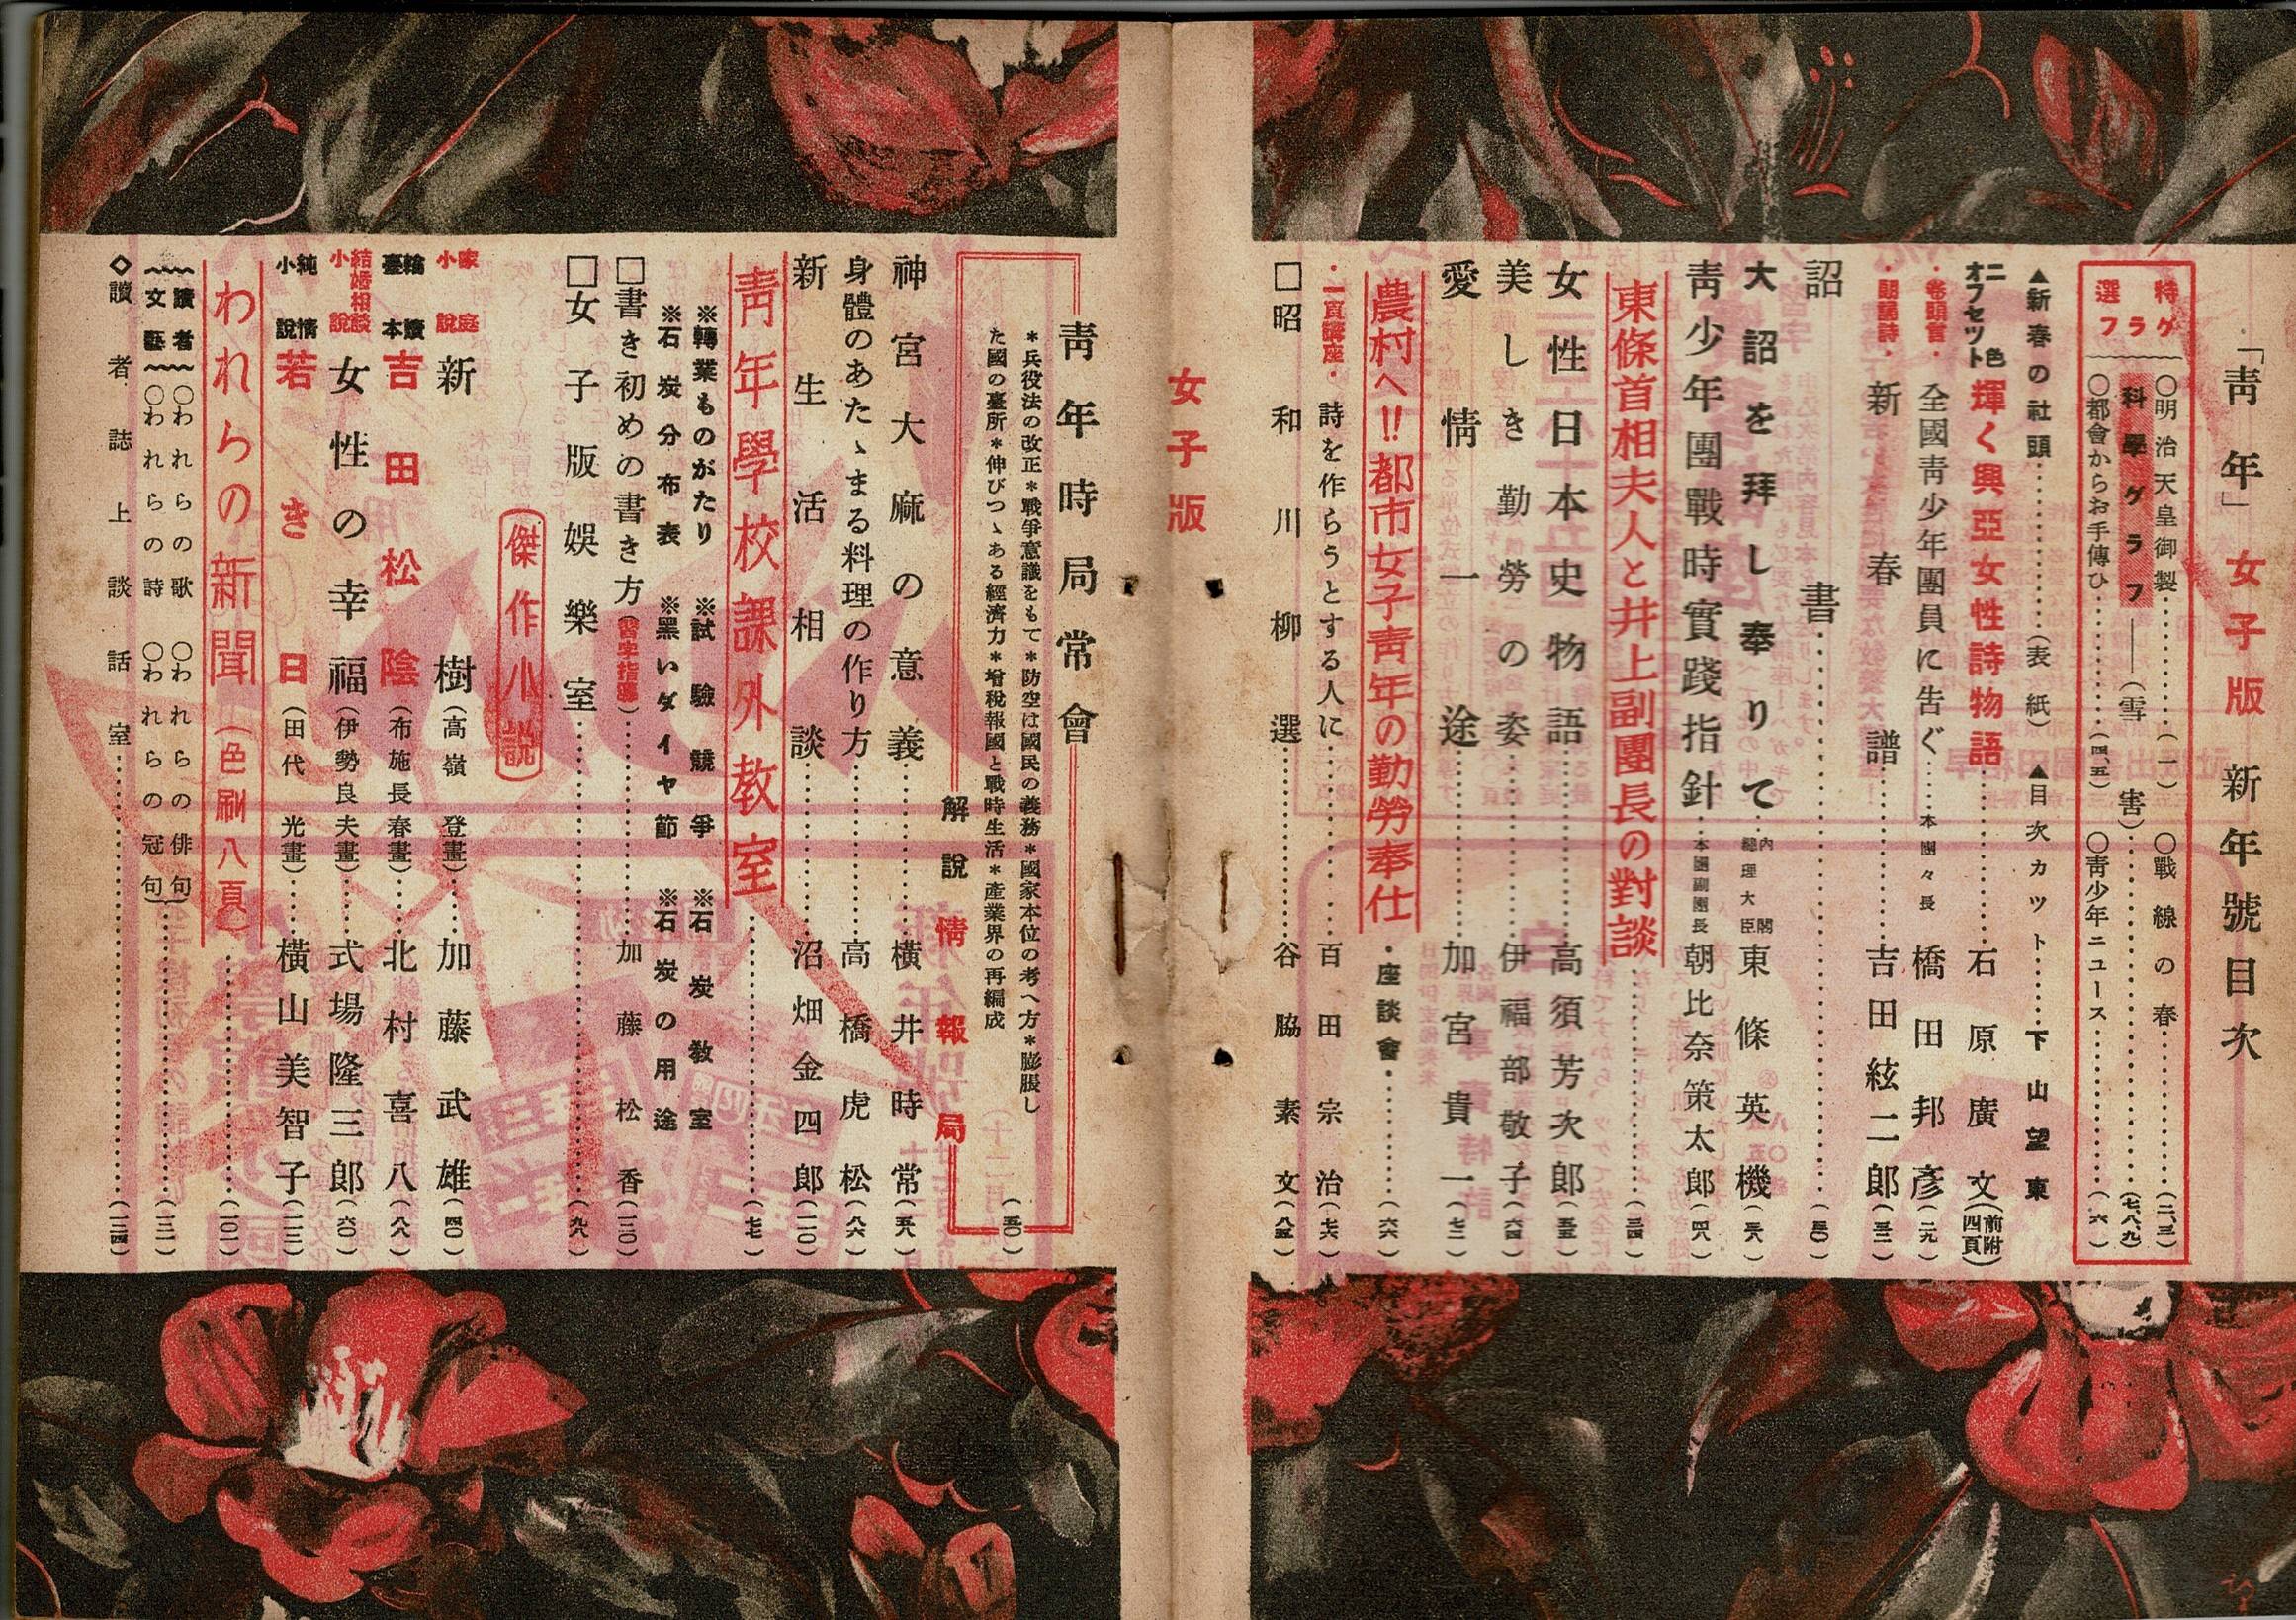 「青年」女子版 新年號目次
特選グラフ
〇明治天皇御製…(一) 〇戰線の春…(二、三)
科學グラフ――(雪害)…(七、八、九)
〇都會からお手傳ひ…(四、五) 〇靑少年ニュース…(六)
▲新春の社頭…(表紙) ▲目次カット…下山望東
二色オフセット 輝く興亞女性詩物語…石原廣文(前附四頁)
・卷頭言・ 全國靑少年團員に告ぐ…本團々長 橋田邦彥(二九)
・朗誦詩・ 新春譜…吉田絃二郎(三二)
詔書…(三〇)
大詔を拜し奉りて…內閣總理大臣 東條英機(三八)
靑少年團戰時實踐指針…本團副團長 朝比奈策太郎(四八)
東條首相夫人と井上副團長の對談…(三四)
女性日本史物語…高須芳次郎(五五)
美しき勤勞の姿…伊福部敬子(六四)
愛情一途…加宮貴一(七二)
農村へ!!都市女子靑年の勤勞奉仕・座談會…(六六)
・一頁講座・ 詩を作らうとする人に…百田宗治(七六)
□昭和川柳選…谷脇素文(八五)
女子版
靑年時局常會
＊兵役法の改正＊戰爭意識をもて＊防空は國民の義務＊國家本位の考へ方＊膨脹し
た國の臺所＊伸びつゝある經濟力＊增稅報國と戰時生活＊產業界の再編成
(五〇)
解說 情報局
神宮大麻の意義…橫井時常(五八)
身體のあたゝまる料理の作り方…高橋虎松(八六)
新生活相談…沼畑金四郎(一一〇)
靑年學校課外教室…(七七)
※轉業ものがたり ※試驗競爭 ※石炭教室
※石炭分布表 ※黑いダイヤ節 ※石炭の用途
□書き初めの書き方(習字指導)…加藤松香(一三〇)
□女子版娛樂室…(九八)
傑作小説
家庭小說 新樹(高嶺登畫)…加藤武雄(四〇)
輪讀臺本 吉田松陰(布施長春畫)…北村喜八(八八)
結婚相談小說 女性の幸福(伊勢良夫畫)…式場隆三郎(六〇)
純情小說 若き日(田代光畫)…橫山美智子(一一三)
われらの新聞(色刷八頁)…(一〇一)
讀者文藝
〇われらの歌 〇われらの俳句
〇われらの詩 〇われらの冠句
…(一三二)
◇讀者誌上談話室…(一三四)